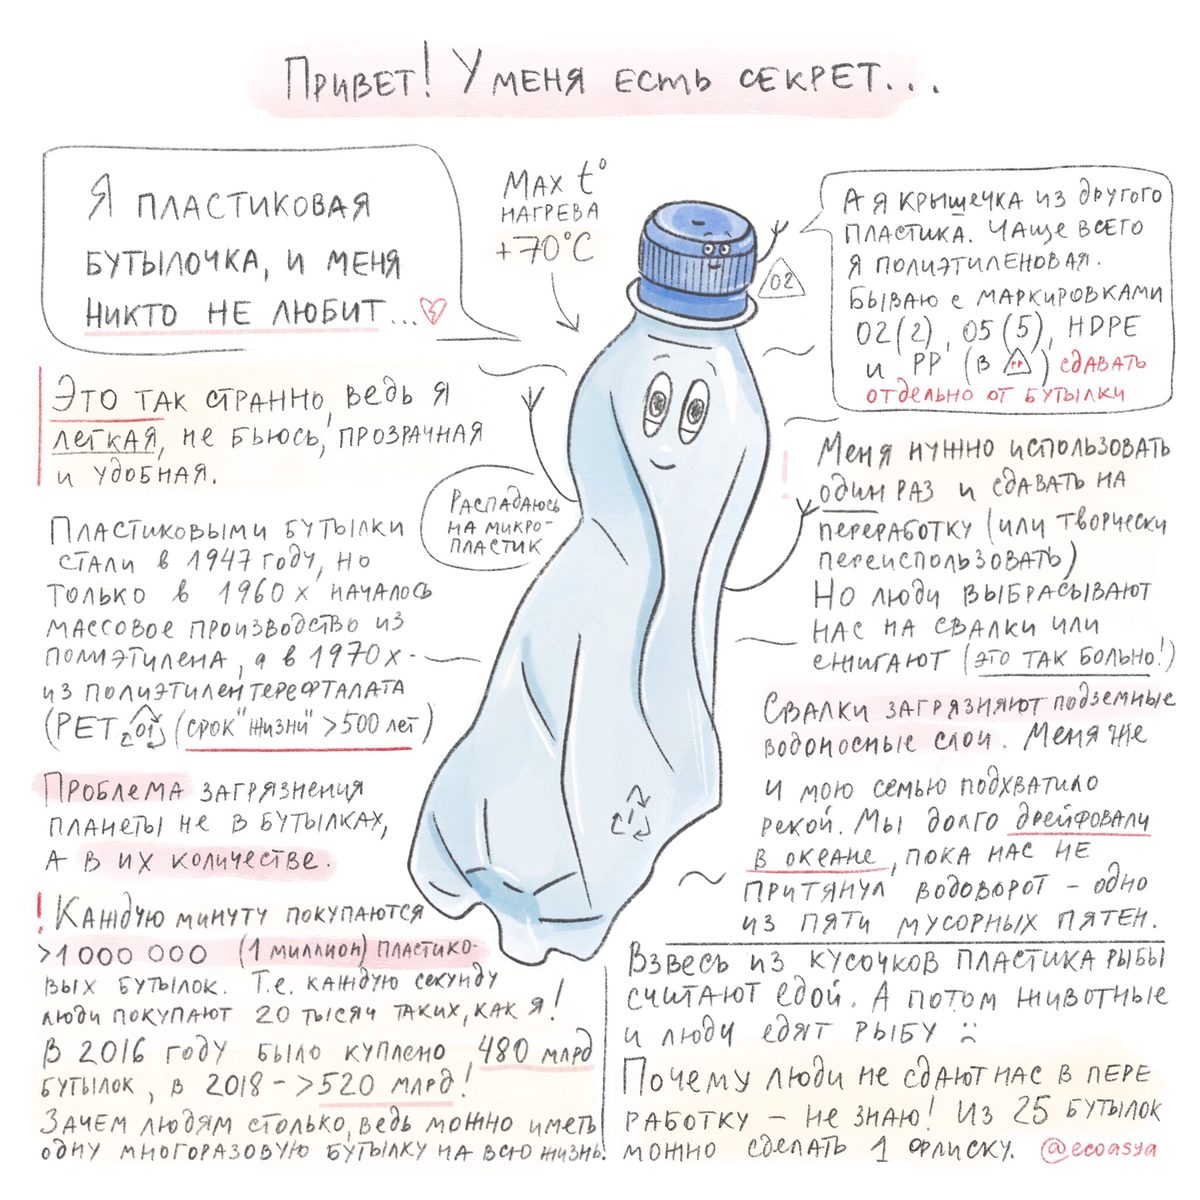 Привет! У меня есть секрет...
Я пластиковая
бутылочка, и меня
никто не любит...
Max t°
нагрева
+70°C
А я крышечка из другого
пластика. Чаще всего
я полиэтиленовая.
Бываю с маркировками
02(2), 05(5), HDPE
и PP (в PP) сдавать
отдельно от бутылки
02
Это так странно, ведь я
легкая, не бьюсь, прозрачная
и удобная.
Распадаюсь
на микро-
пластик
Пластиковыми бутылки
стали в 1947 году, но
только в 1960х началось
массовое производство из
полиэтилена, а в 1970х-
из полиэтилентерефталата
(PET 01 (срок "жизни" >500 лет)
Проблема загрязнения
планеты не в бутылках,
а в их количестве.
! Каждую минуту покупаются
>1000 000 (1 миллион) пластико-
вых бутылок. Т.е. каждую секунду
люди покупают 20 тысяч таких, как я!
В 2016 году было куплено 480 млрд
бутылок, в 2018 - >520 млрд!
Зачем людям столько, ведь можно иметь
одну многоразовую бутылку на всю жизнь!
! Меня нужно использовать
один раз и сдавать на
переработку (или творчески
переиспользовать)
Но люди выбрасывают
нас на свалки или
сжигают (это так больно!)
Свалки загрязняют подземные
водоносные слои. Меня же
и мою семью подхватило
рекой. Мы долго дрейфовали
в океане, пока нас не
притянул водоворот - одно
из пяти мусорных пятен.
Взвесь из кусочков пластика рыбы
считают едой. А потом животные
и люди едят рыбу :(
Почему люди не сдают нас в пере
работку - не знаю! Из 25 бутылок
можно сделать 1 флиску. @ecoasya